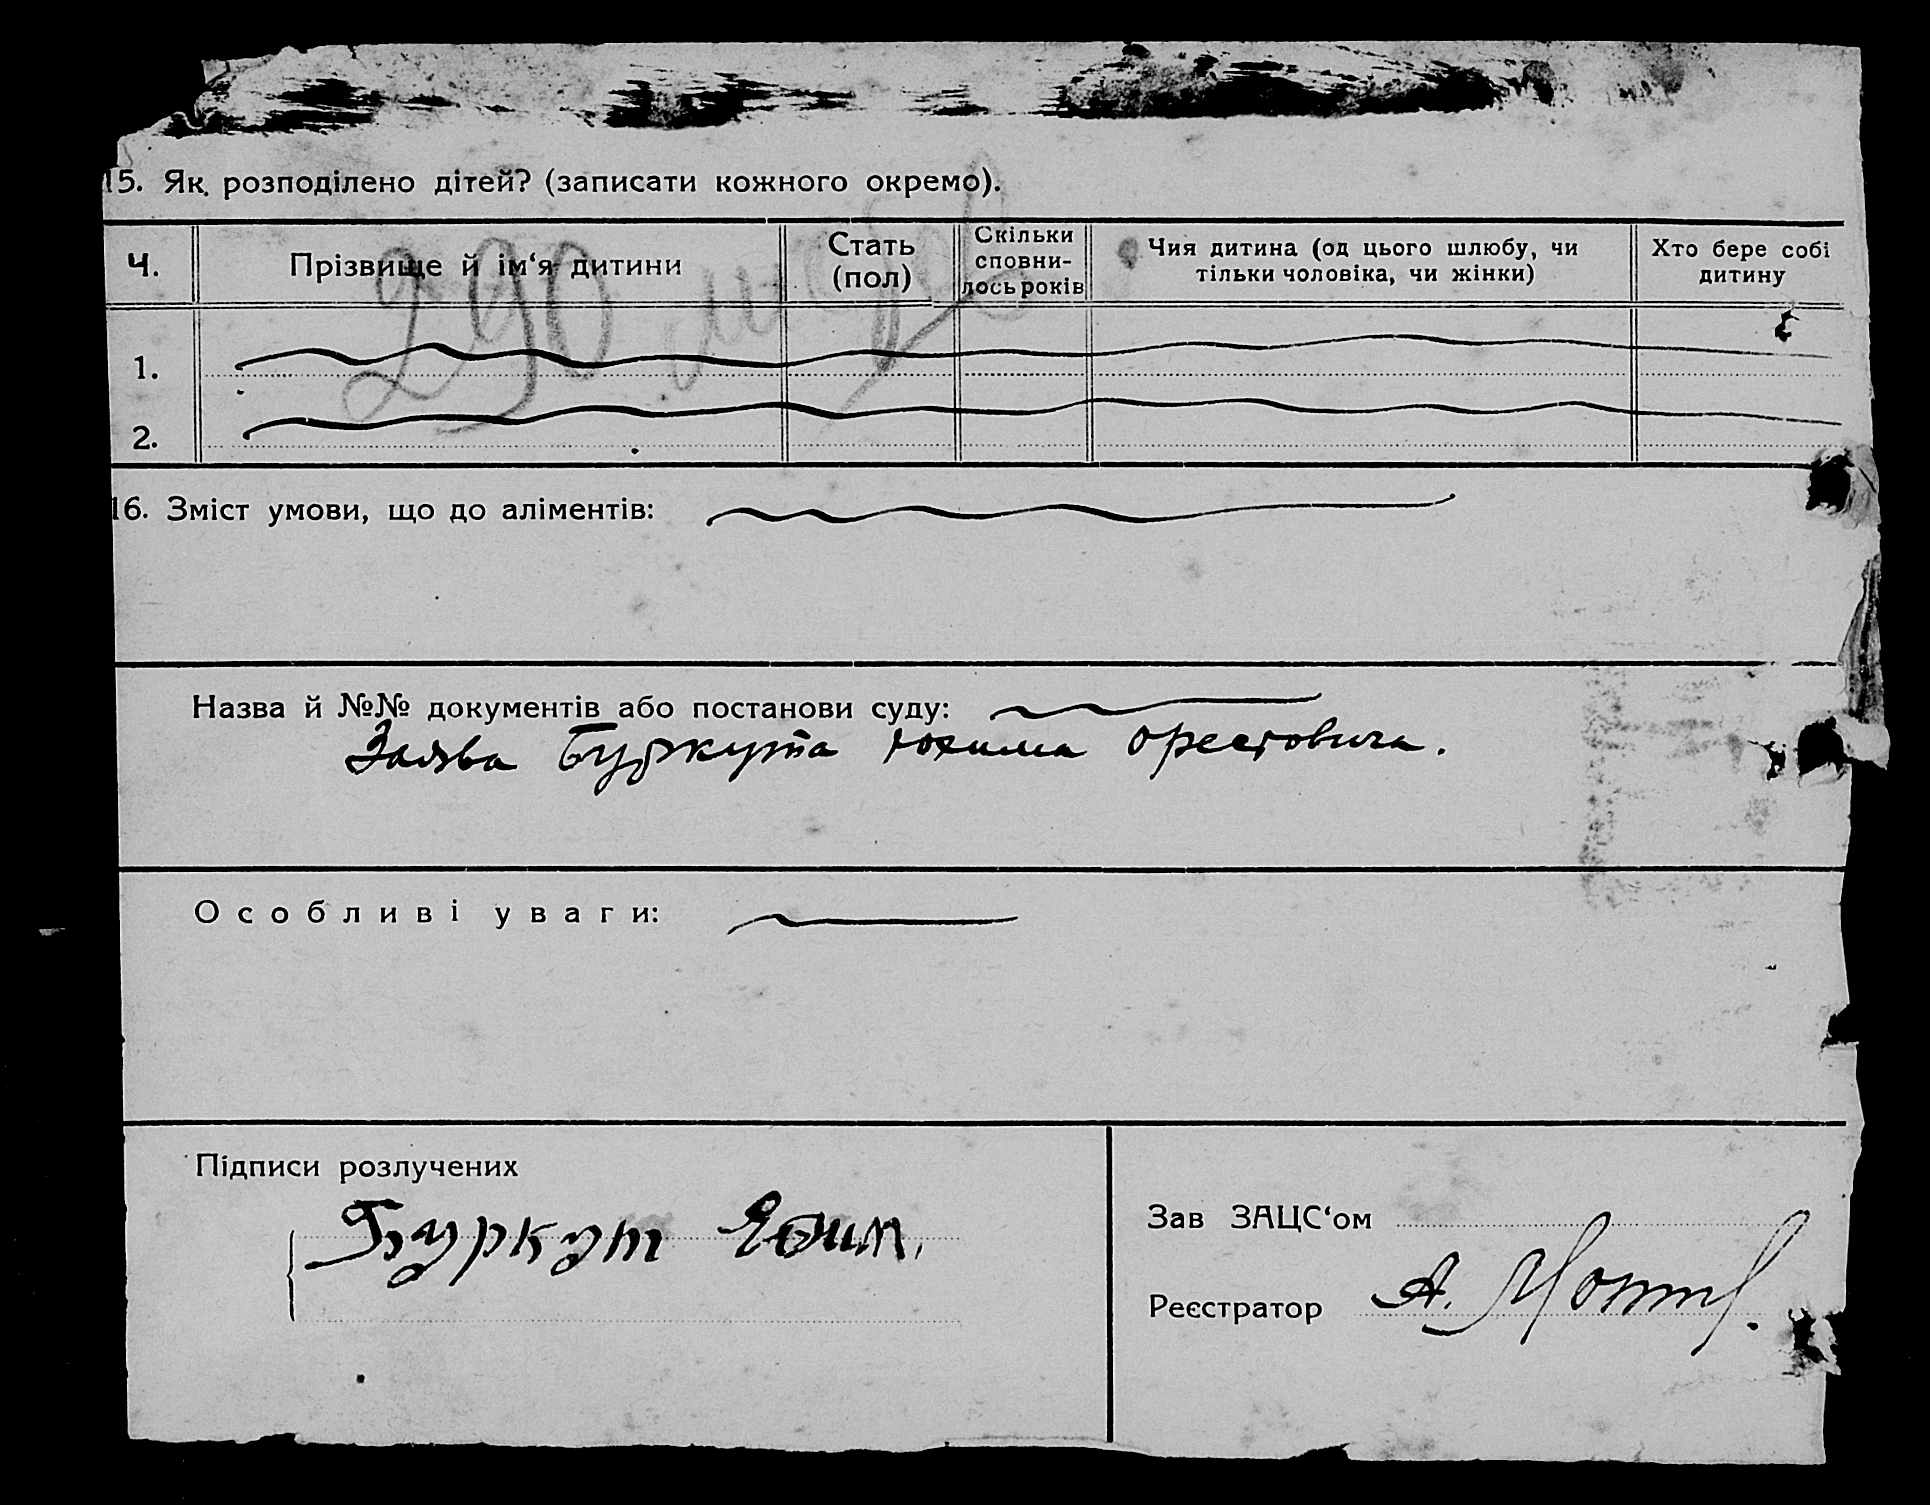 15. Як розподілено дітей? (записати кожного окремо).
Ч.
Прізвище й ім‘я дитини
Стать
(пол)
Скільки
сповни-
лось років
Чия дитина (од цього шлюбу, чи
тільки чоловіка, чи жінки)
Хто бере собі
дитину
290
1.
2.
16. Зміст умови, що до аліментів:
Назва й №№ документів або постанови суду:
Заява Буркута Юхима Орестовича.
Особливі уваги:
Підписи розлучених
Буркут Ефим.
Зав ЗАЦС‘ом
Реєстратор
А.